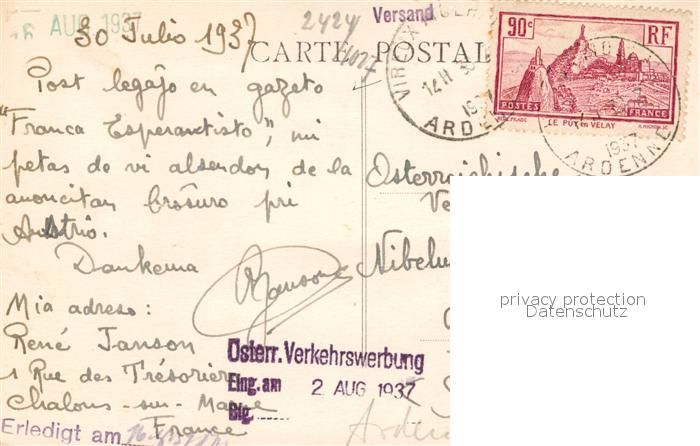 6 AUG 1937
30 Julio 1937
2424
Versand
CARTE POSTALE
90c RF
POSTES FRANCE
LE PUY EN VELAY
12H 30
1937
ARDEN
1937
ARDENNE
Post legaĵo en gazeto
"Franca Esperantisto", mi
petas de vi alsendon de la
anoncitan broŝuro pri
Austrio.
Dankema
RJanson
Mia adreso:
René Janson
1 Rue des Trésoriers
Chalons-sur-Marne
France
Österreichische
Ve
Nibelun
Österr. Verkehrswerbung
Eing. am 2 AUG 1937
Blg.
Erledigt am
privacy protection
Datenschutz